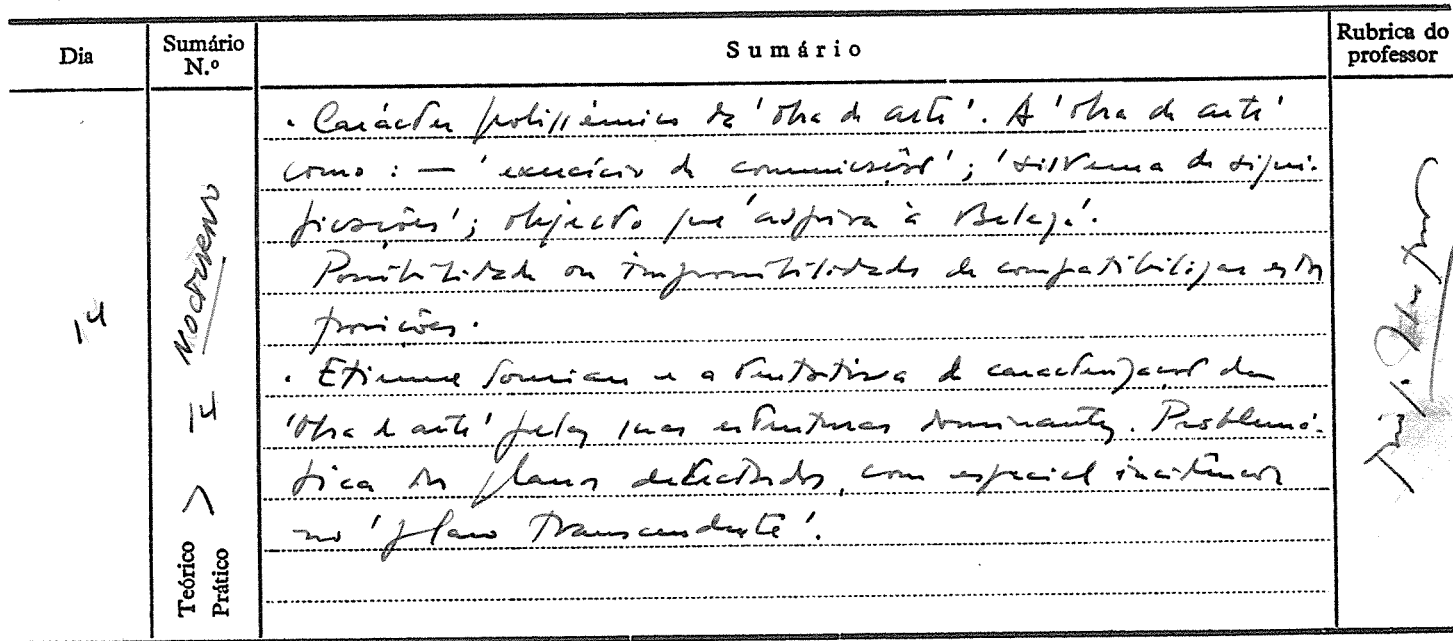 Dia
Sumário N.º
Sumário
Rubrica do professor
14
Teórico
Prático
> 14 Nocturno
. Carácter polissémico da 'obra de arte'. A 'obra de arte'
como : — 'exercício de comunicação'; 'sistema de signi-
ficações'; objecto que 'aspira à Beleza'.
Possibilidade ou impossibilidade de compatibilizar estas
posições.
. Etienne Souriau e a tentativa de caracterização da
'obra de arte' pelas suas estruturas dominantes. Problemá-
tica dos planos detectados, com especial incidência
no 'plano transcendente'.